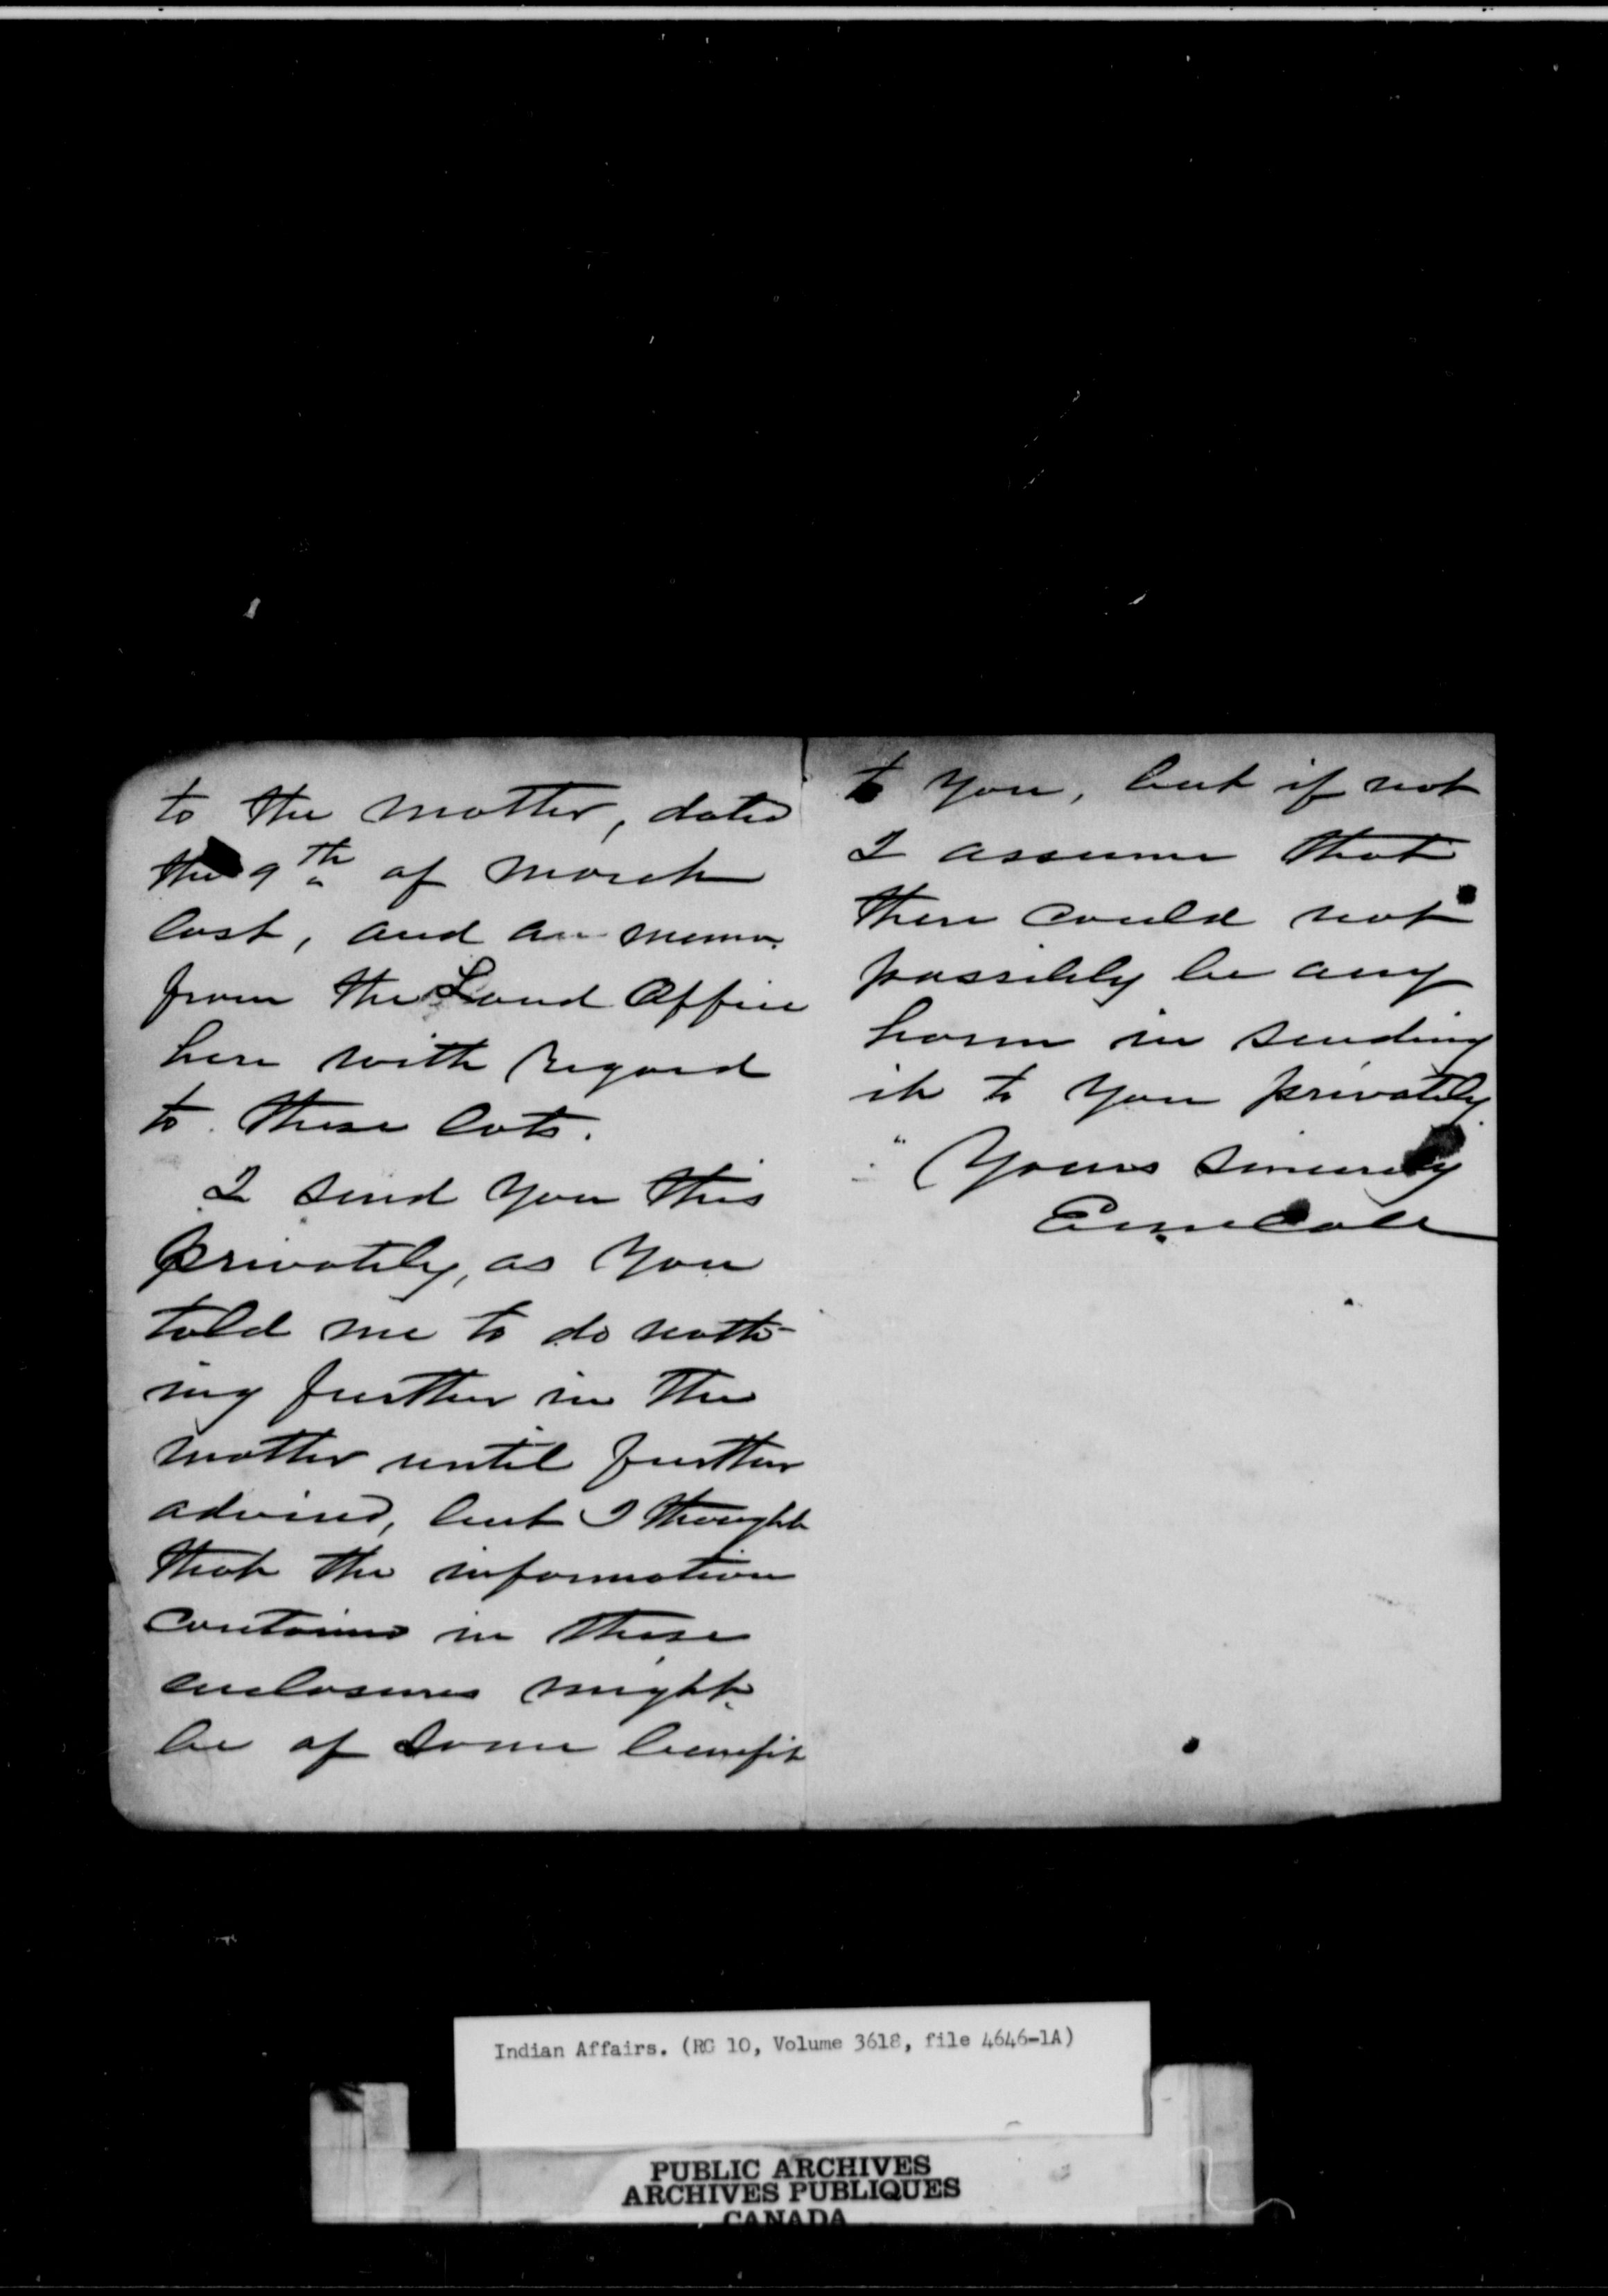 to the matter, dated
the 9th of March
last, and a memo.
from the Land Office
here with regard
to these lots.
I send you this
privately, as you
told me to do noth-
ing further in the
matter until further
advised, but I thought
that the information
contained in these
enclosures might
be of some benefit
to you, but if not
I assume that
there could not
possibly be any
harm in sending
it to you privately
Yours sincerely
Indian Affairs. (RG 10, Volume 3618, file 4646-1A)
PUBLIC ARCHIVES
ARCHIVES PUBLIQUES
CANADA